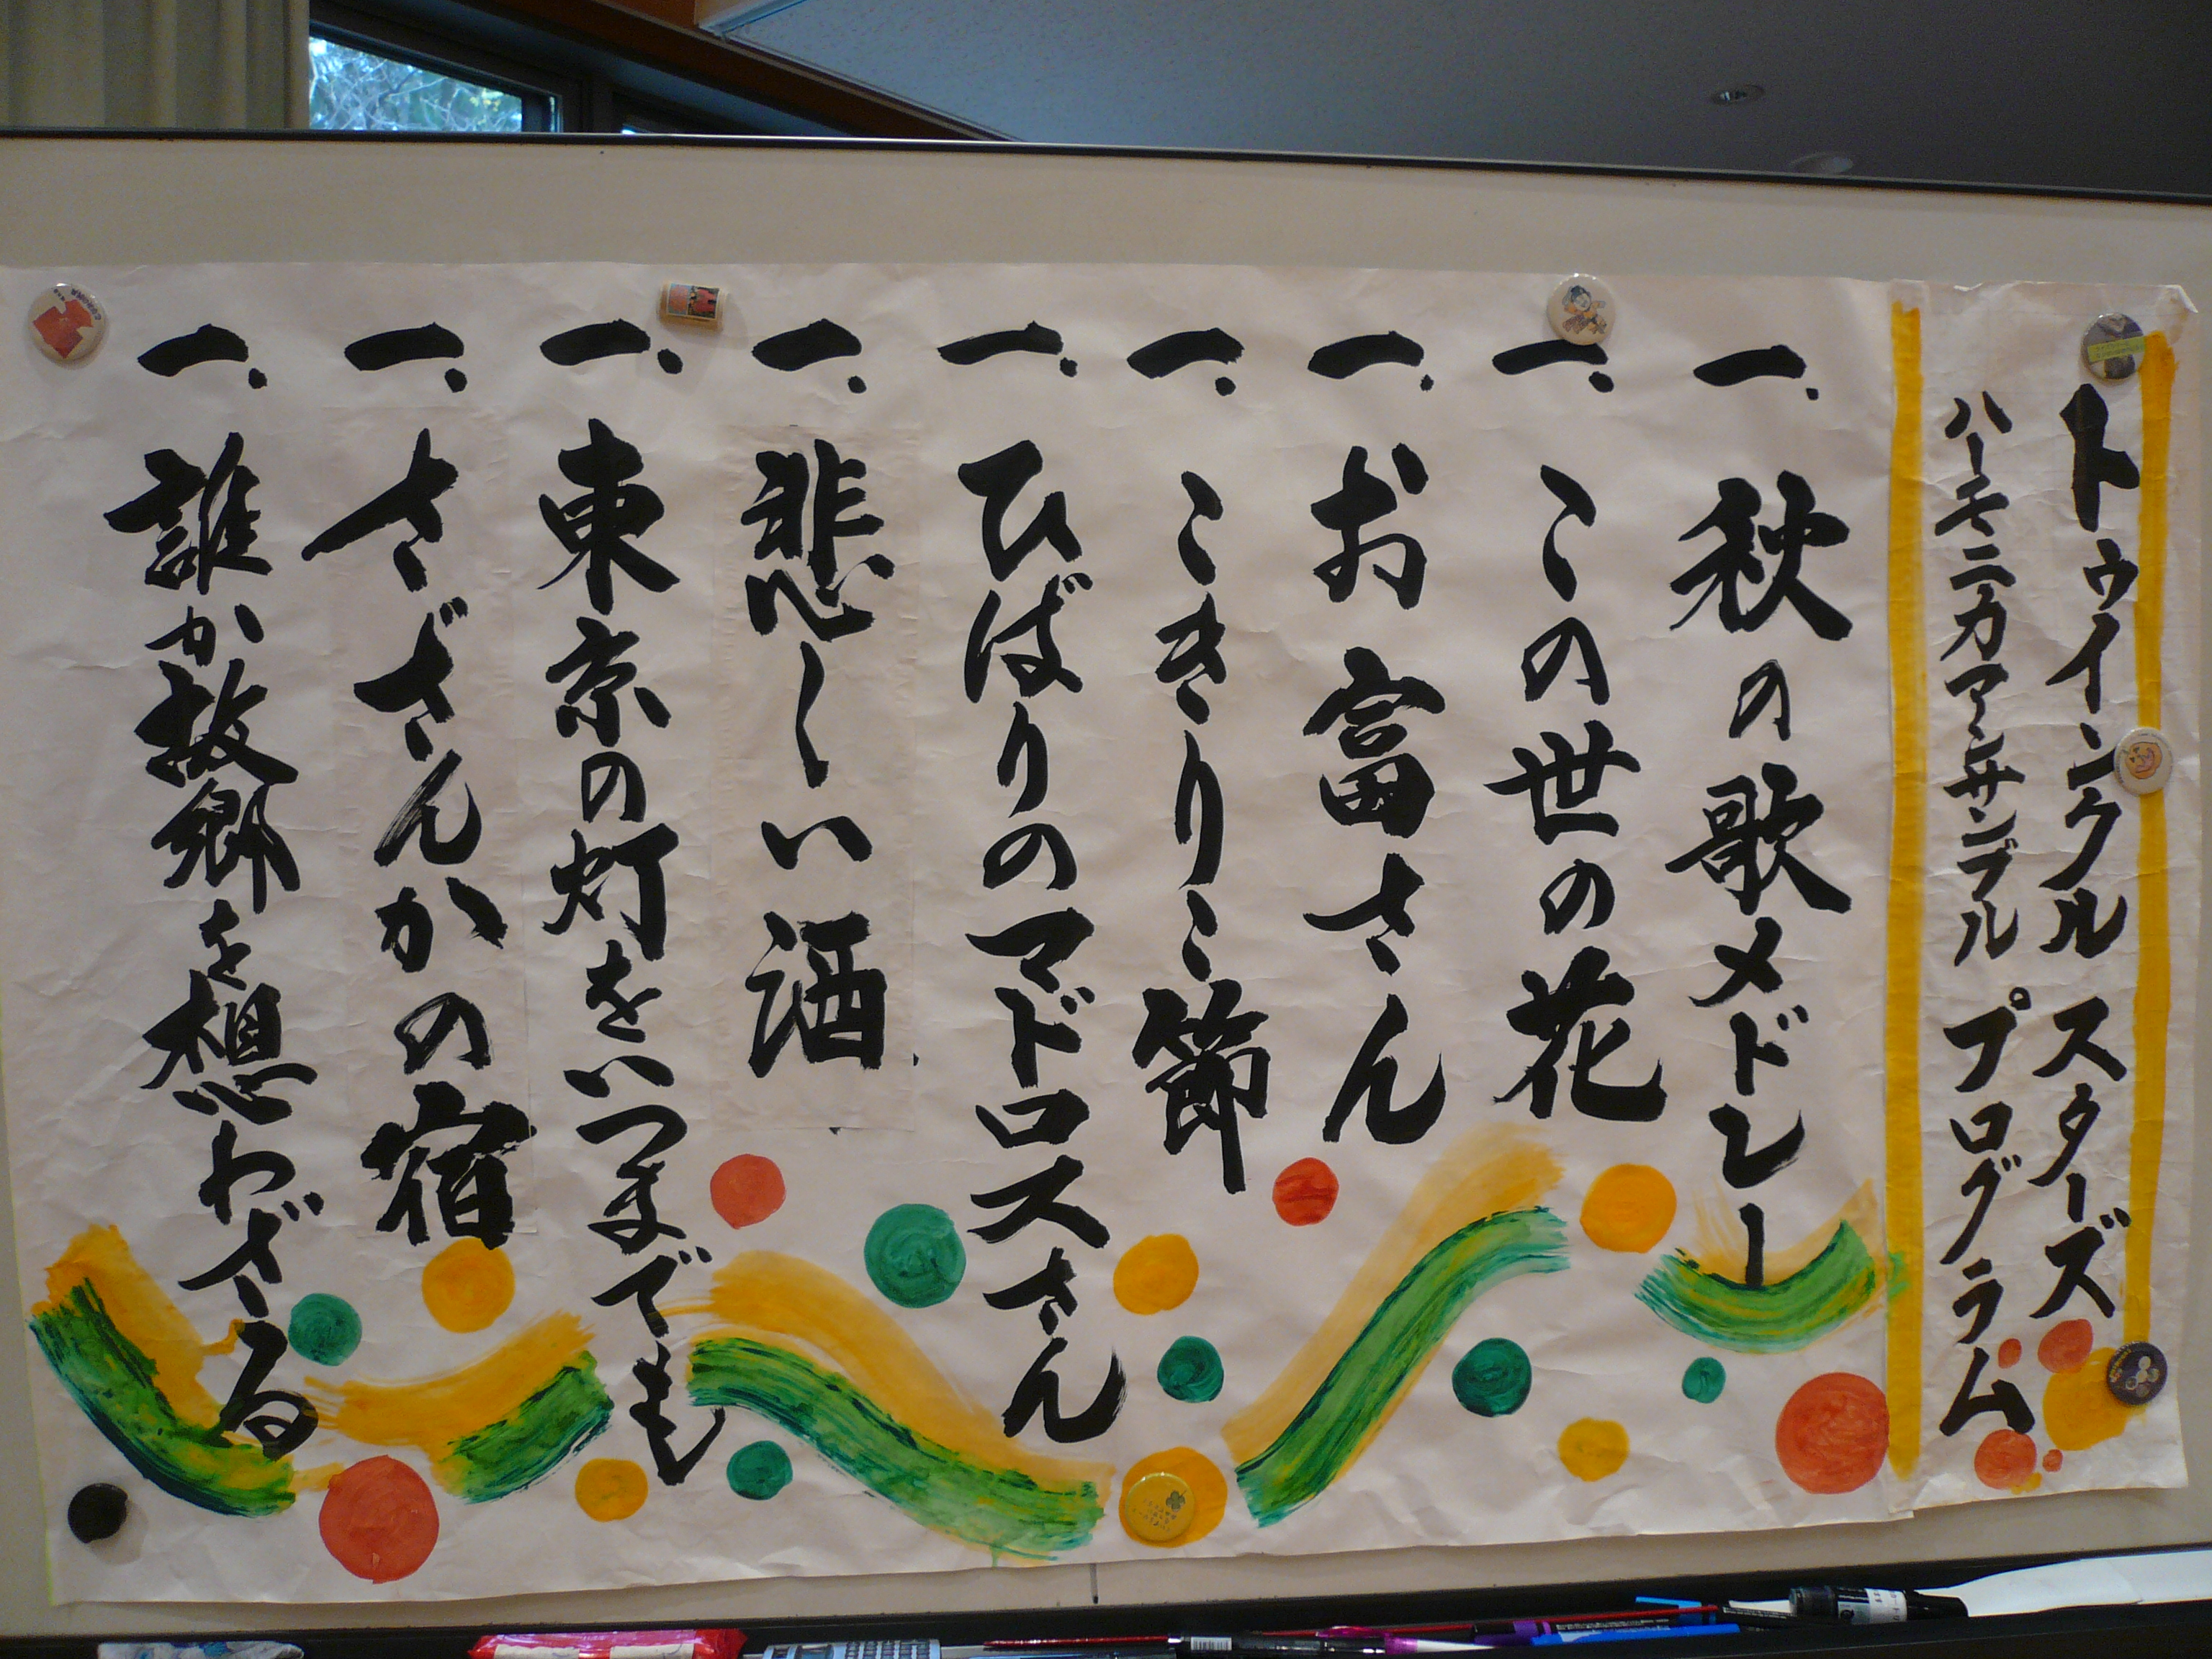 トゥインクル スターズ
ハーモニカアンサンブル プログラム
一、秋の歌メドレー
一、この世の花
一、お富さん
一、こきりこ節
一、ひばりのマドロスさん
一、悲しい酒
一、東京の灯をいつまでも
一、さざんかの宿
一、誰か故郷を想わざる